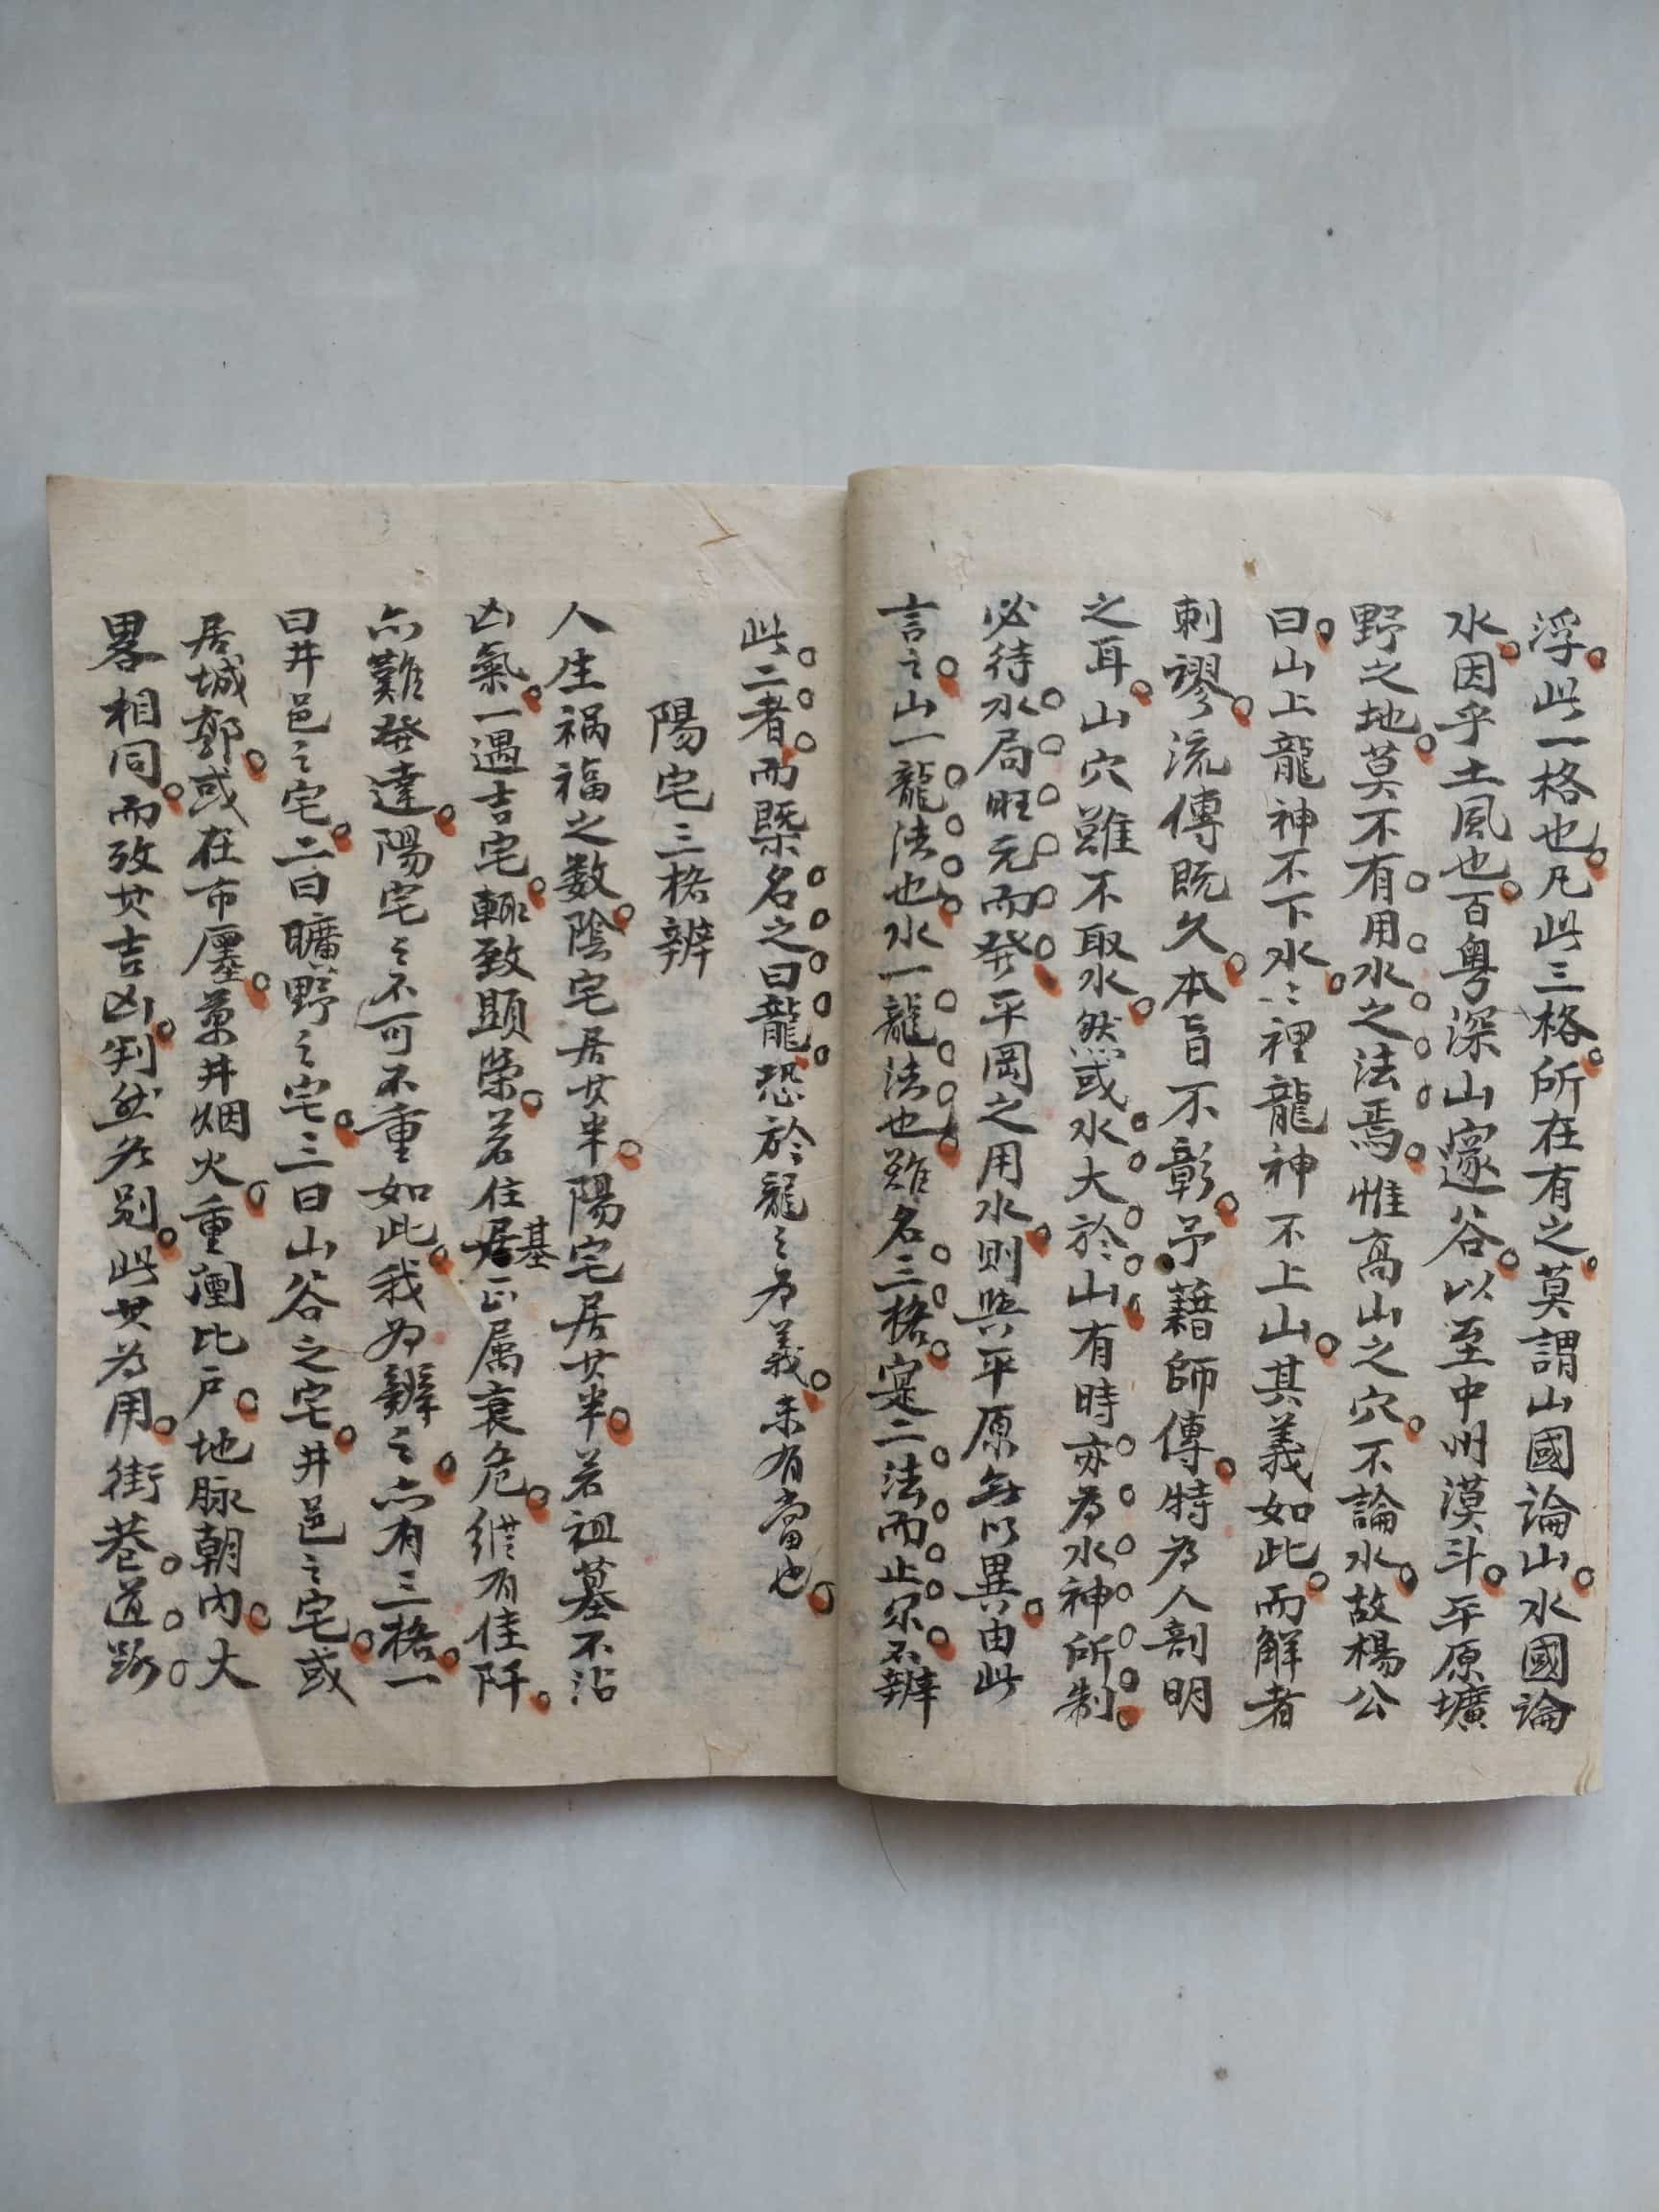 浮此一格也凡此三格所在有之莫謂山國論山水國論
水因乎土風也百粤深山邃谷以至中州漠斗平原壙
野之地莫不有用水之法焉惟高山之穴不論水故楊公
曰山上龍神不下水〻裡龍神不上山其義如此而解者
刺謬流傳既久本旨不彰予藉師傳特为人剖明
之耳山穴雖不取水然或水大於山有時亦为水神所制
必待水局旺元而發平岡之用水则與平原無以異由此
言之山一龍法也水一龍法也雖名三格寔二法而止尔不辨
此二者而槩名之曰龍恐於龍之为義未有當也
陽宅三格辨
人生祸福之数陰宅居其半陽宅居其半若祖墓不沾
凶氣一遇吉宅輙致顕榮若住居基正属衰危縱有佳阡
亦難發達陽宅之不可不重如此我为辨之亦有三格一
曰井邑之宅二曰曠野之宅三曰山谷之宅井邑之宅或
居城郭或在市廛萬井烟火重闉比户地脉朝内大
畧相同而攷其吉凶判然各别此其为用街巷道路